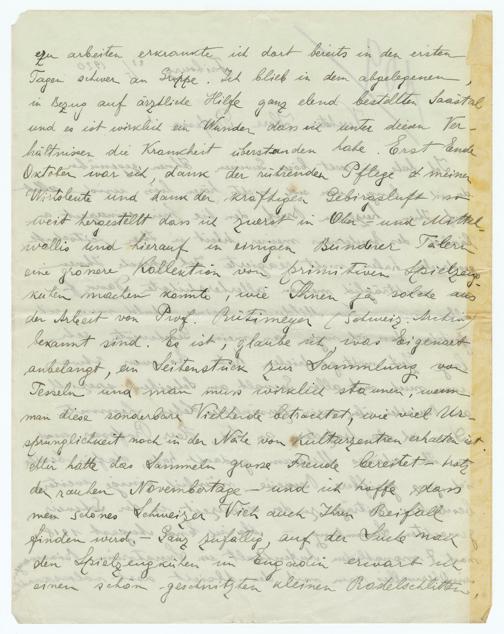 zu arbeiten erkrankte ich dort bereits in den ersten
Tagen schwer an Grippe. Ich blieb in dem abgelegenen,
in Bezug auf ärztliche Hilfe ganz elend bestellten Saastal
und es ist wirklich ein Wunder dass ich unter diesen Ver-
hältnissen die Krankheit überstanden habe. Erst Ende
Oktober war ich, dank der rührenden Pflege meiner
Wirtsleute und dank der kräftigen Gebirgsluft so
weit hergestellt dass ich zuerst in Ober und Mittel-
wallis und hierauf in einigen Bündner Tälern
eine grössere Kollektion von primitiven Spielzeug-
kühen machen konnte, wie Ihnen ja solche aus
der Arbeit von Prof. Rütimeyer (Schweiz. Archiv)
bekannt sind. Es ist, glaube ich, was Eigenart
anbelangt, ein Seitenstück zur Sammlung von
Tesseln und man muss wirklich staunen, wenn
man diese sonderbare Viehherde betrachtet, wie viel Ur-
sprünglichkeit noch in der Nähe von Kulturzentren erhalten ist
Mir hätte das Sammeln grosse Freude bereitet – trotz
der rauhen Novembertage – und ich hoffe dass
mein schönes Schweizer Vieh auch Ihren Beifall
finden wird. – Ganz zufällig, auf der Suche nach
den Spielzeugkühen im Engadin erwarb ich
einen schön geschnitzten kleinen Rodelschlitten,